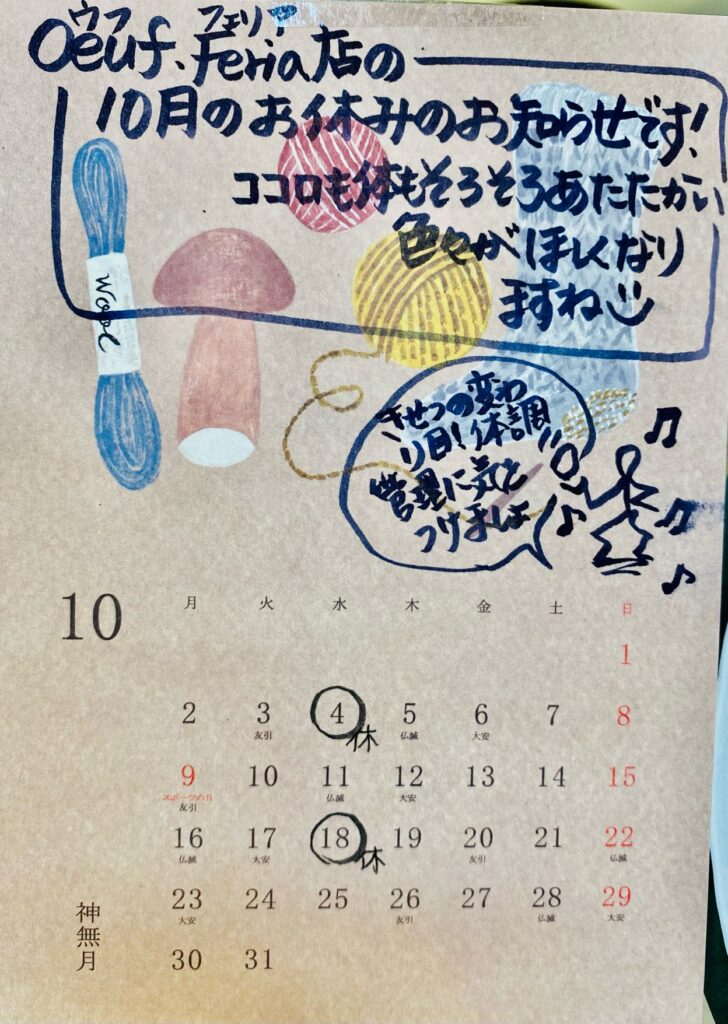 ウフ フェリア
Oeuf、Feria店の
10月のお休みのお知らせです!
ココロも体もそろそろあたたかい
色がほしくなり
ますね
wool
きせつの変わ
り目!体調
管理に気を
つけましょ
10
月 火 水 木 金 土 日
1
2 3 4 5 6 7 8
友引 休 仏滅 大安
9 10 11 12 13 14 15
スポーツの日
友引 仏滅 大安
16 17 18 19 20 21 22
仏滅 大安 休 友引 仏滅
23 24 25 26 27 28 29
大安 友引 仏滅 大安
30 31
神無月